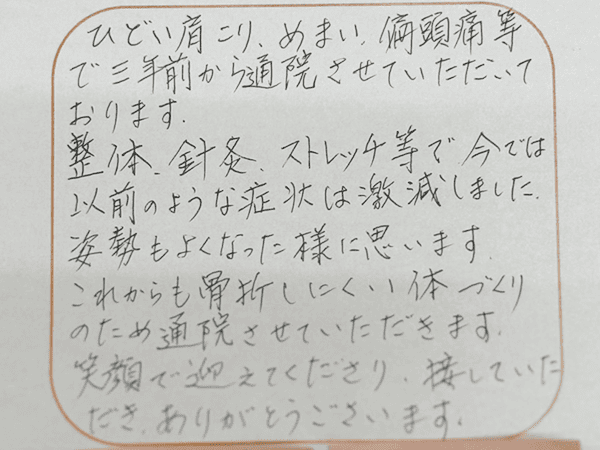 ひどい肩こり、めまい、偏頭痛等
で三年前から通院させていただいて
おります。
整体、針灸、ストレッチ等で今では
以前のような症状は激減しました。
姿勢もよくなった様に思います。
これからも骨折しにくい体づくり
のため通院させていただきます。
笑顔で迎えてくださり、接していた
だき、ありがとうございます。